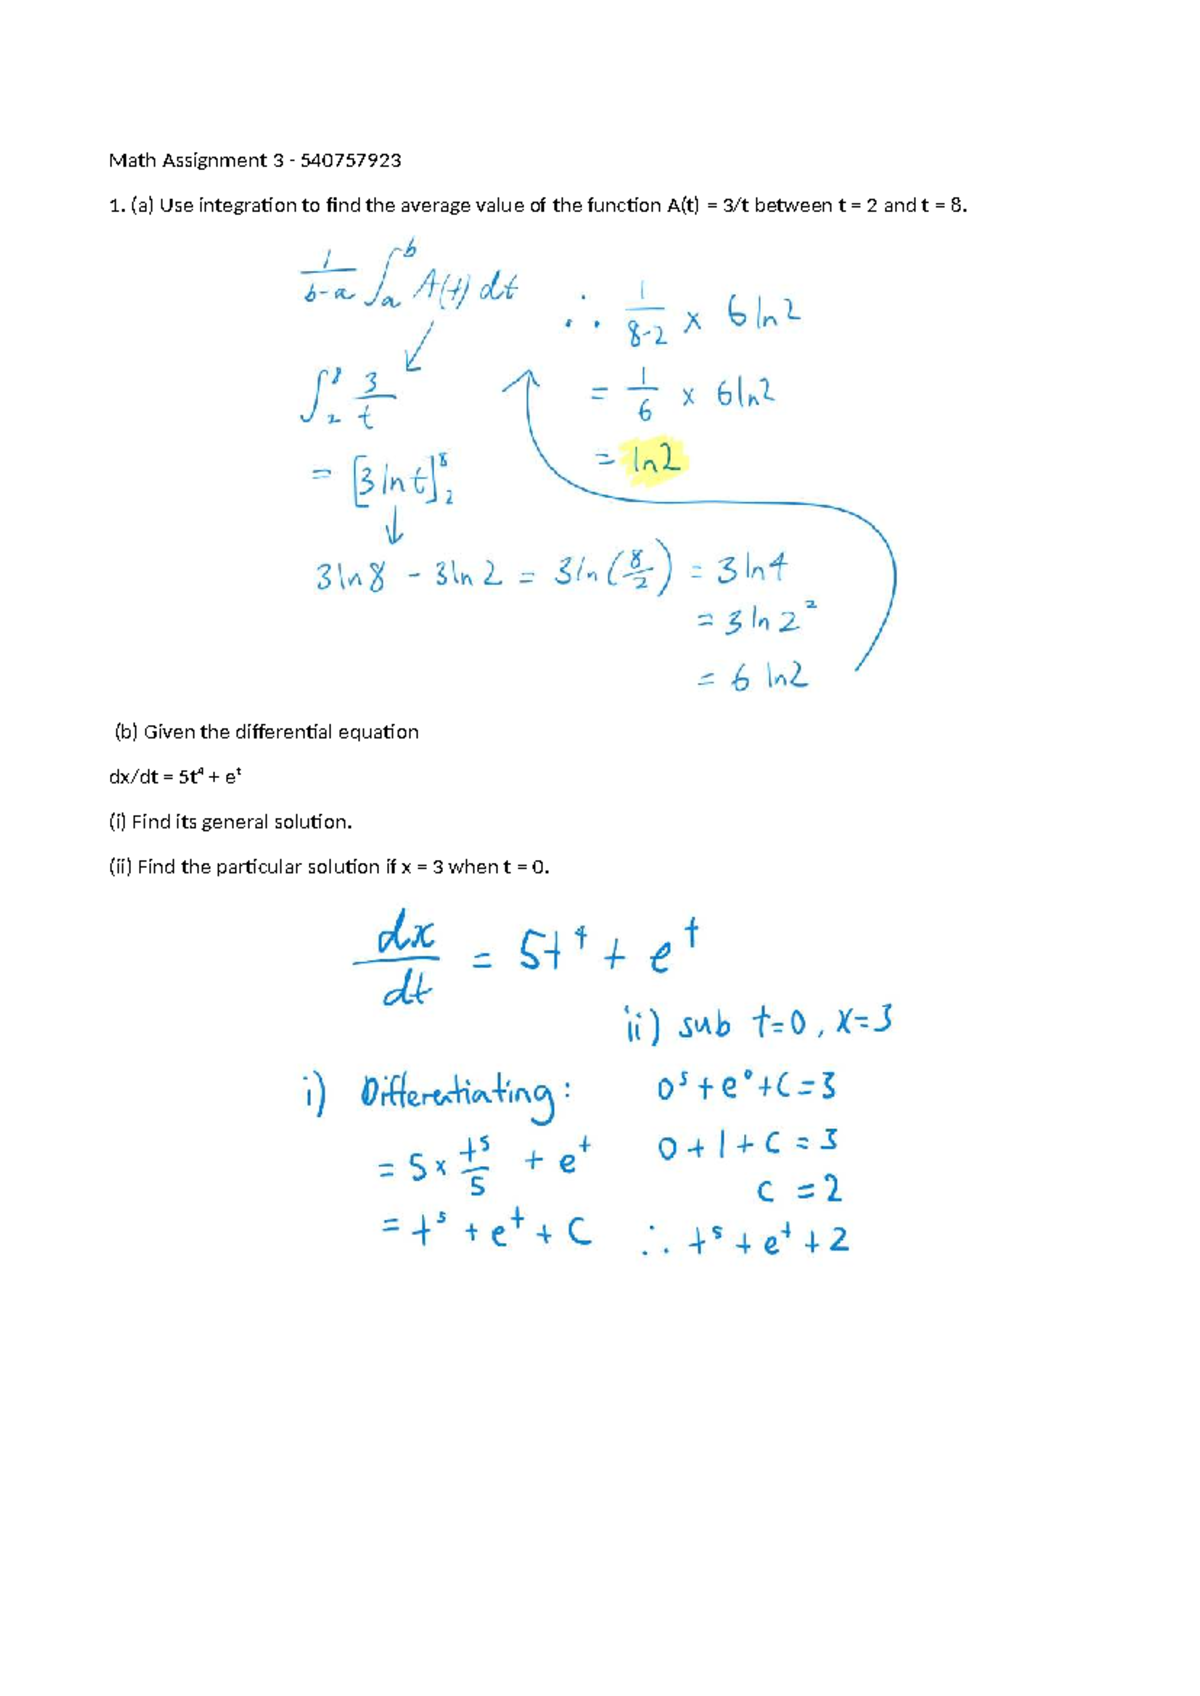 Math Assignment 3 - 540757923
1. (a) Use integration to find the average value of the function A(t) = 3/t between t = 2 and t = 8.
1/(b-a) ∫ₐᵇ A(t) dt
∫₂⁸ 3/t
= [3 ln t]₂⁸
3ln8 - 3ln2 = 3ln(8/2) = 3ln4
= 3ln2²
= 6 ln2
∴ 1/(8-2) × 6ln2
= 1/6 × 6ln2
= ln2
(b) Given the differential equation
dx/dt = 5t⁴ + eᵗ
(i) Find its general solution.
(ii) Find the particular solution if x = 3 when t = 0.
dx/dt = 5t⁴ + eᵗ
i) Differentiating:
= 5 × t⁵/5 + eᵗ
= t⁵ + eᵗ + C
ii) sub t=0, x=3
0⁵ + e⁰ + C = 3
0 + 1 + C = 3
C = 2
∴ t⁵ + eᵗ + 2